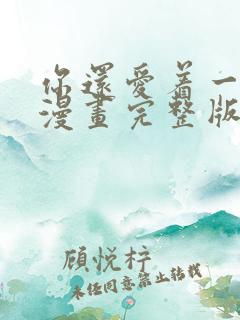 你還愛着一
漫畫完整版
顧悅梓
未任同意禁止转载